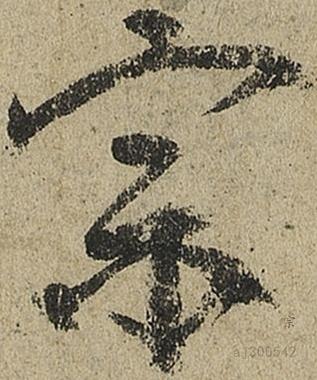 宗
宗
aj300542